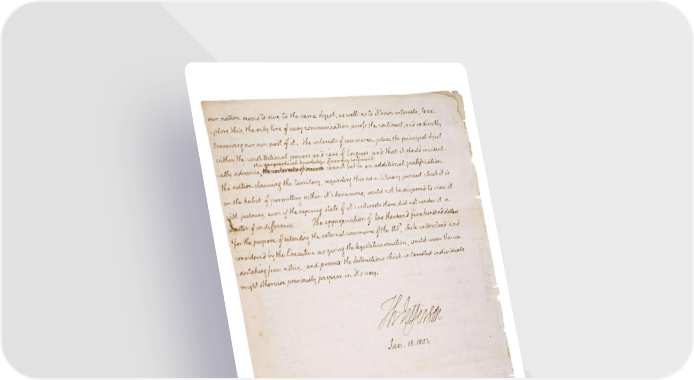 our nation seems to owe to the same object, as well as to it's own interests, to ex-
-plore this, the only line of easy communication across the continent, and so directly
traversing our own part of it. the interests of commerce place the principal object
within the constitutional powers and care of Congress, and that it should incident-
the geographical knowledge of our own continent
-ally advance cannot but be an additional gratification.
the nation claiming the territory, regarding this as a literary pursuit which it is
in the habit of permitting within it's dominions, would not be disposed to view it
with jealousy, even if the expiring state of it's interests there did not render it a
matter of indifference. The appropriation of two thousand five hundred dollars
'for the purpose of extending the external commerce of the US,' while understood and
considered by the Executive as giving the legislative sanction, would cover the un-
-dertaking from notice, and prevent the obstructions which interested individuals
might otherwise previously prepare in it's way.
Th: Jefferson
Jan. 18. 1803.